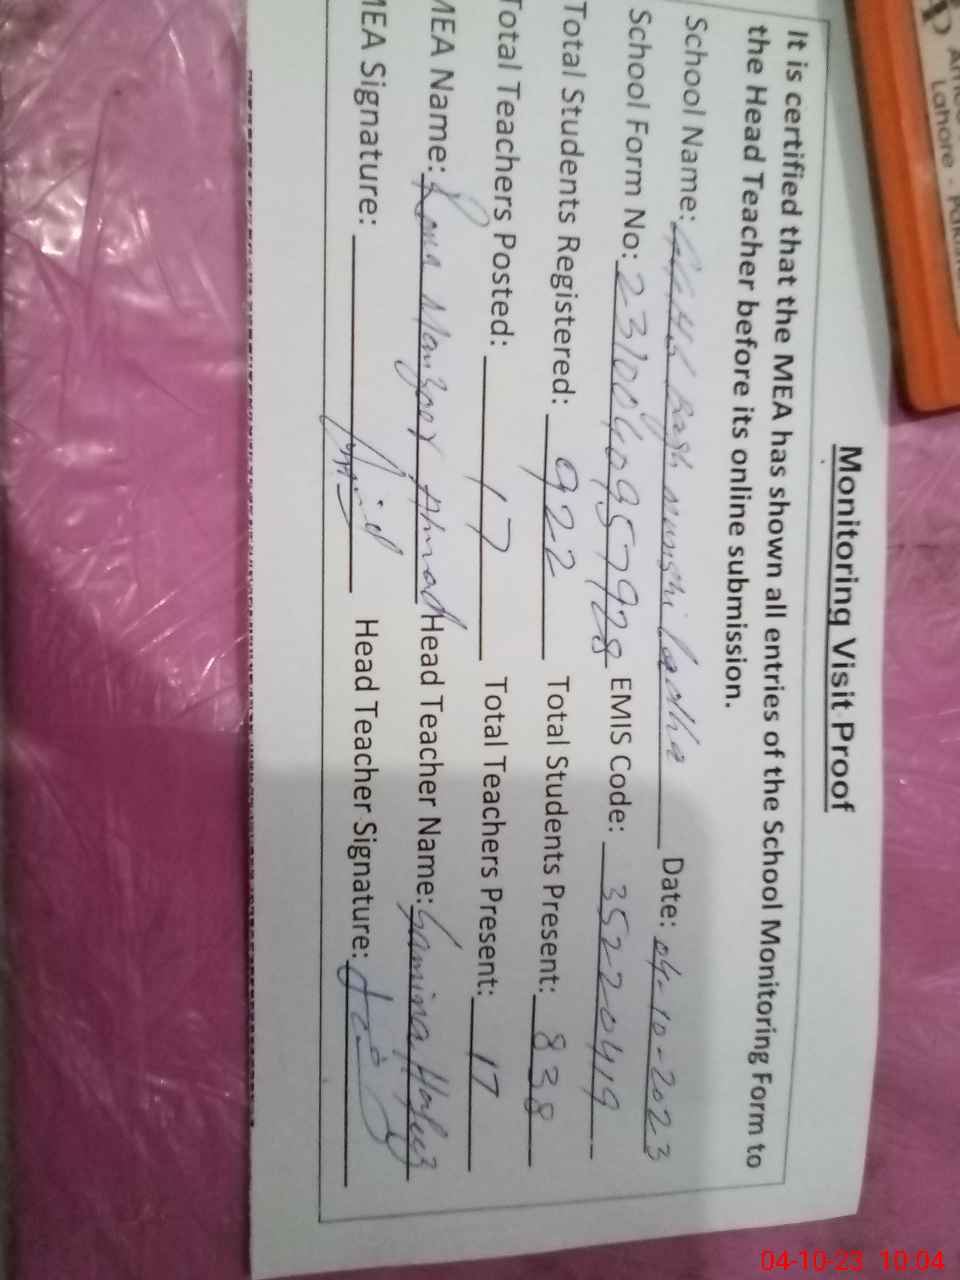 Lahore - Pakist
Monitoring Visit Proof
It is certified that the MEA has shown all entries of the School Monitoring Form to
the Head Teacher before its online submission.
School Name: munshi ladha Date: 04-10-2023
School Form No: EMIS Code: 35220419
Total Students Registered: 922 Total Students Present: 838
Total Teachers Posted: 17 Total Teachers Present: 17
MEA Name: Rana Manzoor Ahmad Head Teacher Name: Samina Hafeez
MEA Signature: Head Teacher Signature:
04-10-23 10:04